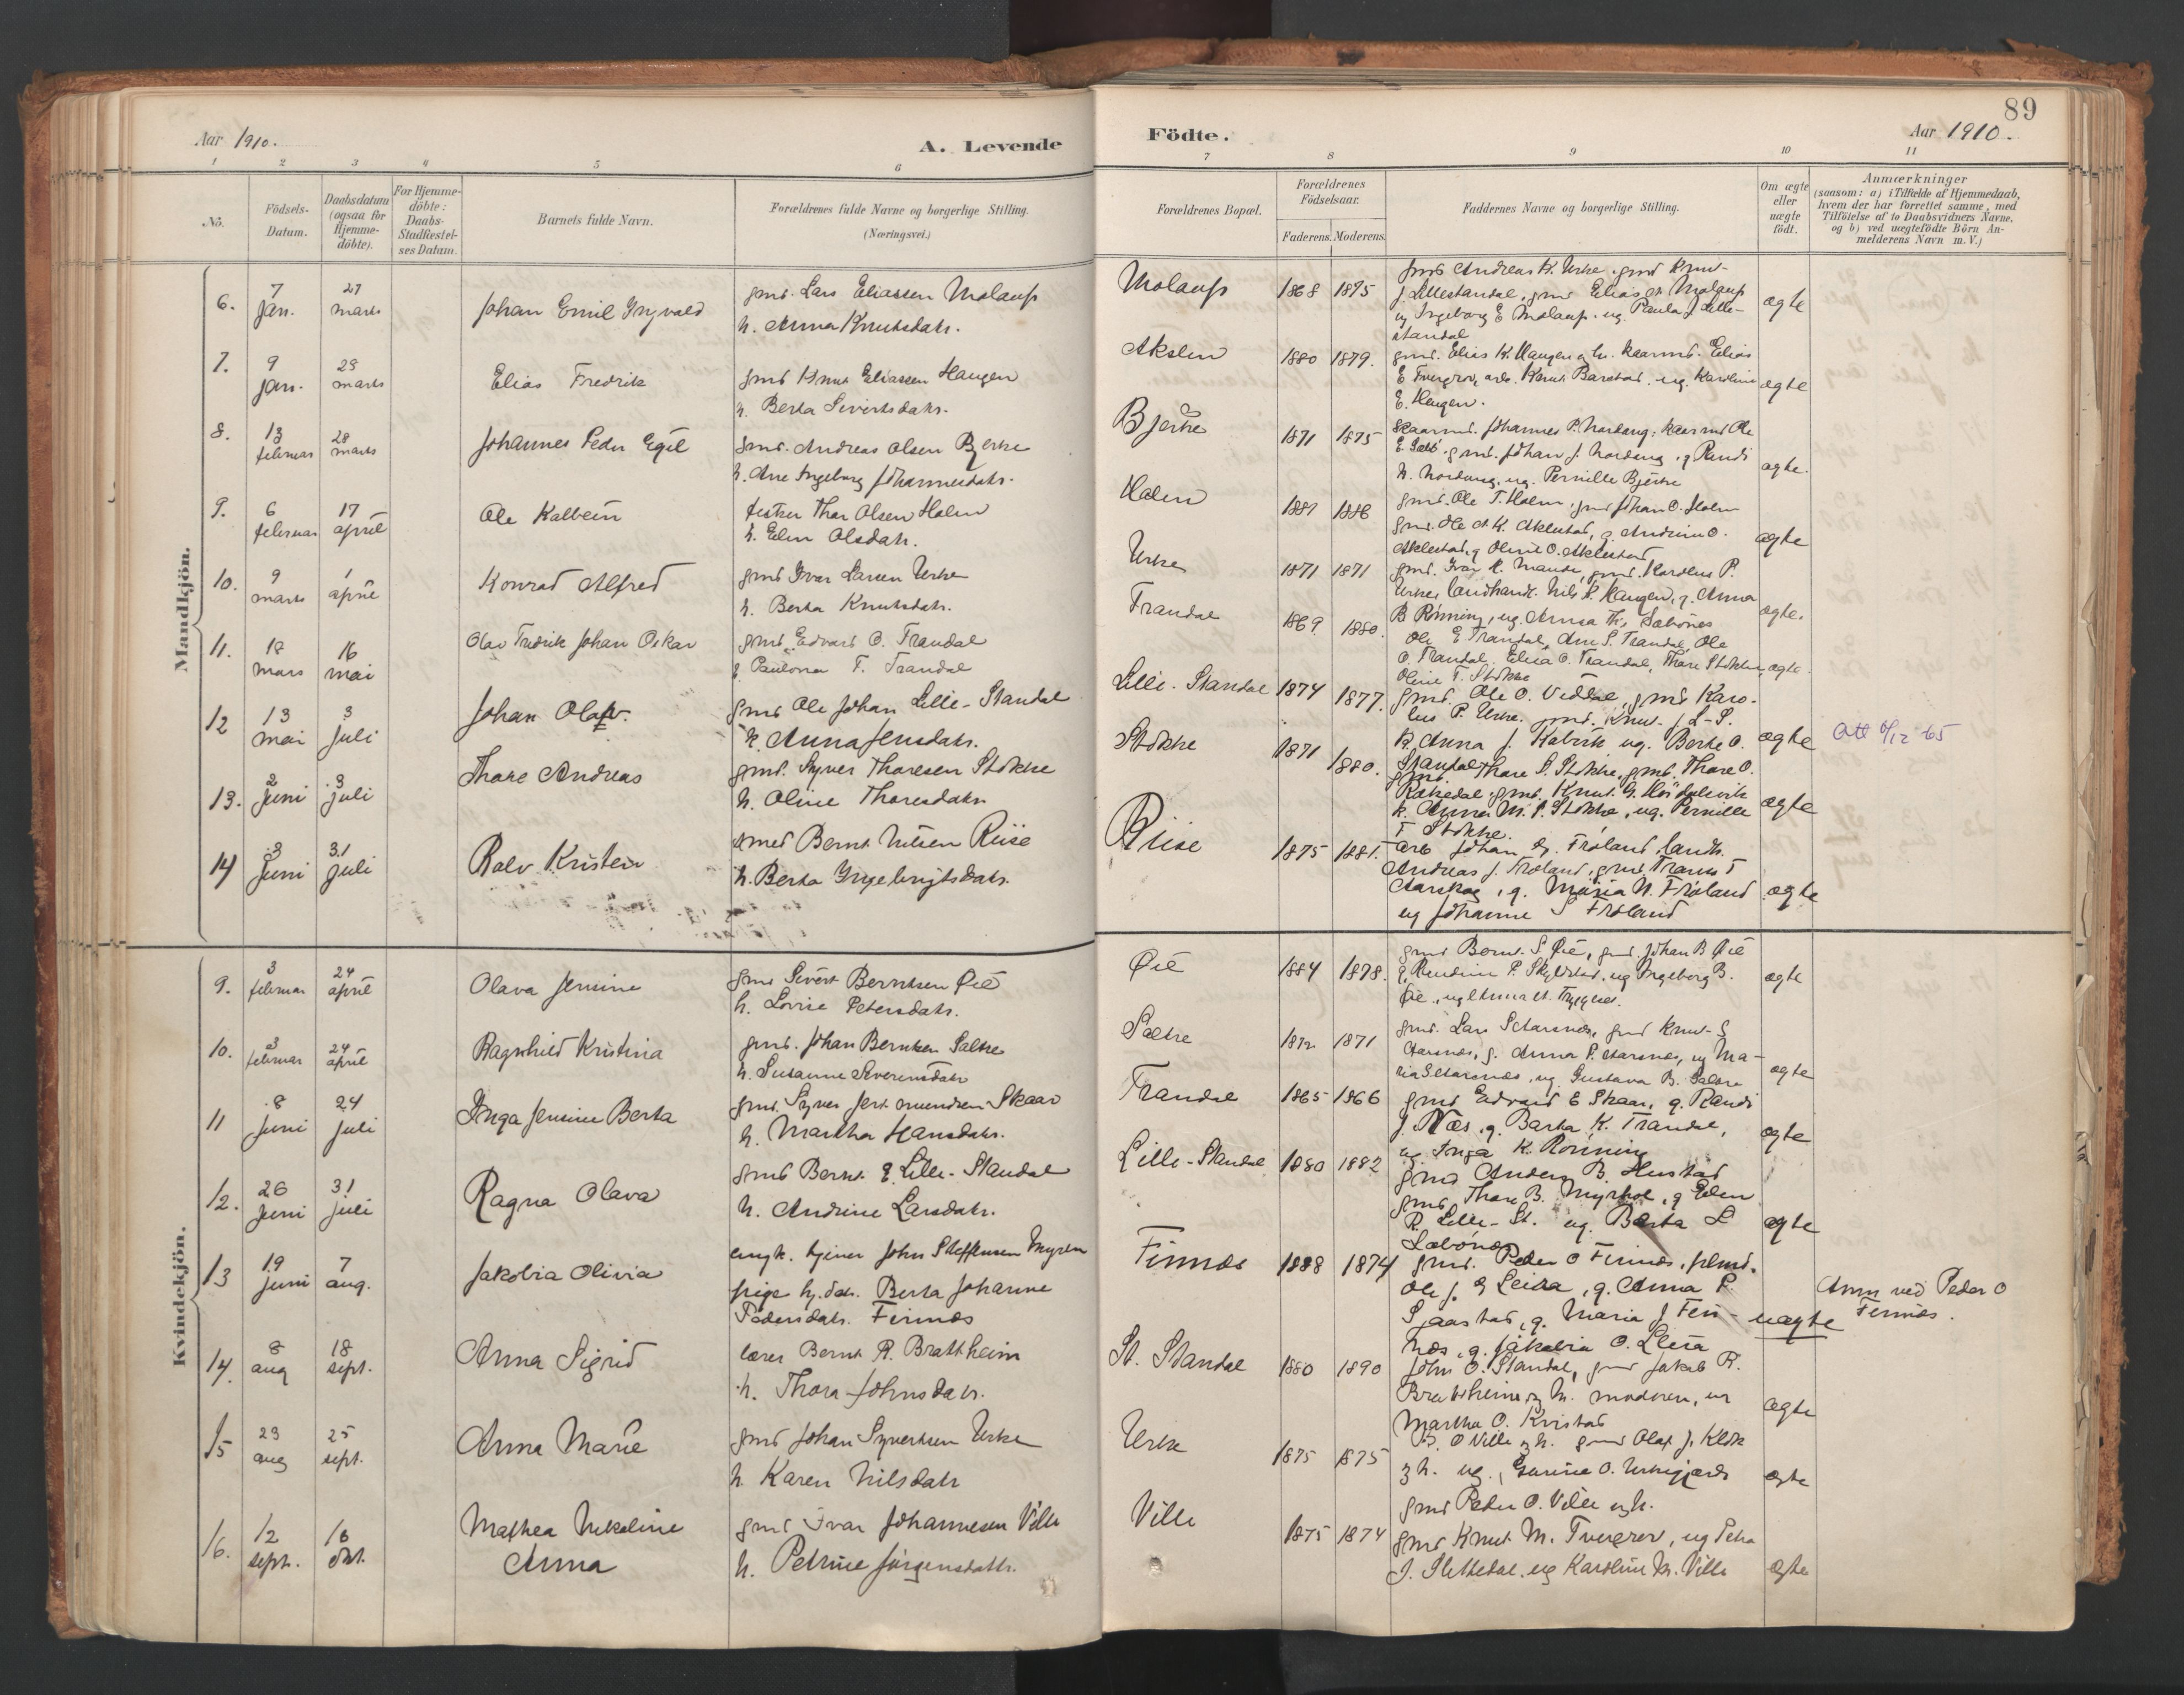 89
Aar 1910.
A. Levende
Födte.
Aar 1910.
1 2 3 4 5 6 7 8 9 10 11
No.
Födsels-Datum.
Daabsdatum (ogsaa for Hjemme-döbte).
For Hjemme-döbte: Daabs-Stadfæstel-ses Datum.
Barnets fulde Navn.
Forældrenes fulde Navne og borgerlige Stilling.
(Næringsvei.)
Forældrenes Bopæl.
Forældrenes Födselsaar.
Faderens. Moderens.
Faddernes Navne og borgerlige Stilling.
Om ægte eller uægte födt.
Anmærkninger
(saasom: a) i Tilfælde af Hjemmedaab, hvem der har forrettet samme, med Tilföielse af to Daabsvidners Navne, og b) ved uægtefödte Börn An-melderens Navn m. V.)
Mandkjön.
6. 7 jan. 27 marts Johan Emil Ingvald gmd. Lars Eliassen Molaup h. Anna Knutsdatr. Molaup 1868 1875
gmd Andreas K. Urke, gmd Knut
J. Lillestandal, gmd Elias Molaup
og Ingeborg E Molaup. ug. Paula J Lille-
standal
ægte
7. 9 jan. 28 marts Elias Fredrik gmd Knut Eliassen Haugen h. Berta Sivertsdatr. Akslen 1880 1879.
gmd. Elias K. Haugen og h. kaarmd. Elias
E Knut Barstad. ug. Karoline
E. Haugen.
ægte
8. 13 februar 28 marts Johannes Peder Egil gmd. Andreas Olsen Bjerke h. Ane Ingeborg Johannesdatr. Bjerke 1871 1875
kaarmd. Johannes P. Nordang, kaarmd Ole
E gmd. Johan J. Nordang, g Randi
N. Nordang, ug. Pernille Bjerke
ægte.
9. 6 februar 17 april Ole Kalbein Thor Olsen Holen h. Elen Olsdatr. Holen 1881 1886
gmd. Ole T. Holen, gmd Johan O. Holen
gmd. Ole A. K. Aklestad, g. Andrine O.
Aklestad, g Oline O. Aklestad
ægte
10. 9 marts 1 april Konrad Alfred gmd Ivar Larsen Urke h. Berta Knutsdatr. Urke 1871 1871
gmd. Ivar K. gmd. Karolus P.
Urke, landhandl. Nils K. Haugen, g. Anna
B Rönning, ug. Anna Th. Sæbönes
ægte.
11. 12 mars 16 mai Olav Fredrik Johan Oskar gmd. Edvard O. Trandal h. T. Trandal Trandal 1869 1880.
Ole E Trandal, Ane S. Trandal, Ole
O. Trandal, Elisa O. Trandal, Thore Stokke,
Oline T. Stokke
ægte.
12 13 mai 3 juli Johan Olav. gmd Ole Johan Lille-Standal h. Anna Jensdatr. Lille-Standal 1874 1877.
gmd. Ole O. Viddal, gmd Karo-
lus P. Urke. gmd. Knut J L-S.
k. Anna J. ug. Berte O.
Standal
ægte
13. 2 juni 3 juli Thore Andreas gmd. Syver Thoresen Stokke h. Oline Thoresdatr. Stokke 1871 1880.
gmd. Thore S. Stokke, gmd. Thore O.
gmd. Knut
k. Anna M. S. Stokke, ug. Pernille
T Stokke.
ægte
14 3 juni 31 juli Rolv Kristen smed Bernt Nilsen Riise h. Berta Ingebrigtsdatr. Riise 1875 1881.
arb Johan Fröland, landh.
Andreas J. Fröland, gmd T
Aarskog, g. Maria N. Fröland
ug Johanne S Fröland
ægte
Kvindekjön.
9. 3 februar 24 april Olava Jensine gmd Sivert Berntsen Öie h. Lovise Petersdatr. Öie 1884 1878.
gmd Bernt. S. Öie, gmd Johan B Öie
g, Randine P. Skylstad, ug Ingeborg B.
Öie., ug Anna
ægte
10. 3 februar 24 april Ragnhild Kristina gmd. Johan Berntsen Sætre h. Susanne Severinsdatr Sætre 1871
gmd. Lars S Aarsnes, gmd Knut S
Aarsnes, g. Anna P. Aarsnes, ug Ma-
ria S Aarsnes, ug. Gustava B. Sætre
ægte
11 8 juni 24 juli Inga Jensine Berta gmd. Syver Skaar h. Martha Hansdatr. Trandal 1865 1866
gmd Edvard E Skaar, g. Randi
J. Næs, g. Barta K. Trandal,
ug. Inga K. Rönning
ægte
12. 26 juni 31 juli Ragna Olava gmd Bernt E. Lille-Standal h. Andrine Larsdatr. Lille-Standal 1880 1882
gmd Anders B. Hustad
gmd. Thore B. Myrhol, g Elen
R. Lille-St. ug. Berta L
Sæbönes
ægte
13 19 juni 7 aug. Jakobia Olivia ungk. tjener John Steffensen Myren pige hj. datr. Berta Johanne Pedersdatr. Finnes Finnes 1888 1874
gmd. Peder O Finnes,
Ole J. Leira, g. Anna P.
g. Maria J Fin-
nes, g. Jakobia O. Leira
uægte
Anm ved Peder O Finnes.
14. 8 aug 18 sept. Anna Sigrid lærer Bernt R. Brattheim h. Thora Johnsdatr. St. Standal 1880 1890
John O. Standal, gmd Jakob R.
Brattheim og h. moderen, ug
Martha O. Kvistad
ægte
15 23 aug 25 sept. Anna Marie gmd Johan Syvertsen Urke h. Karen Nilsdatr Urke 1875 1875
O Ville og h. gmd Olaf J. Klok
og h. ug., O. Urkegjærde
ægte
16. 12 sept. 16 okt. Mathea Nikoline Anna gmd Ivar Johannesen Ville h. Petrine Jörgensdatr. Ville 1875 1874
gmd Peder O. Ville og h.
gmd Knut M. Tverrer, ug Petra
J. Slettedal, ug Karoline M. Ville
ægte